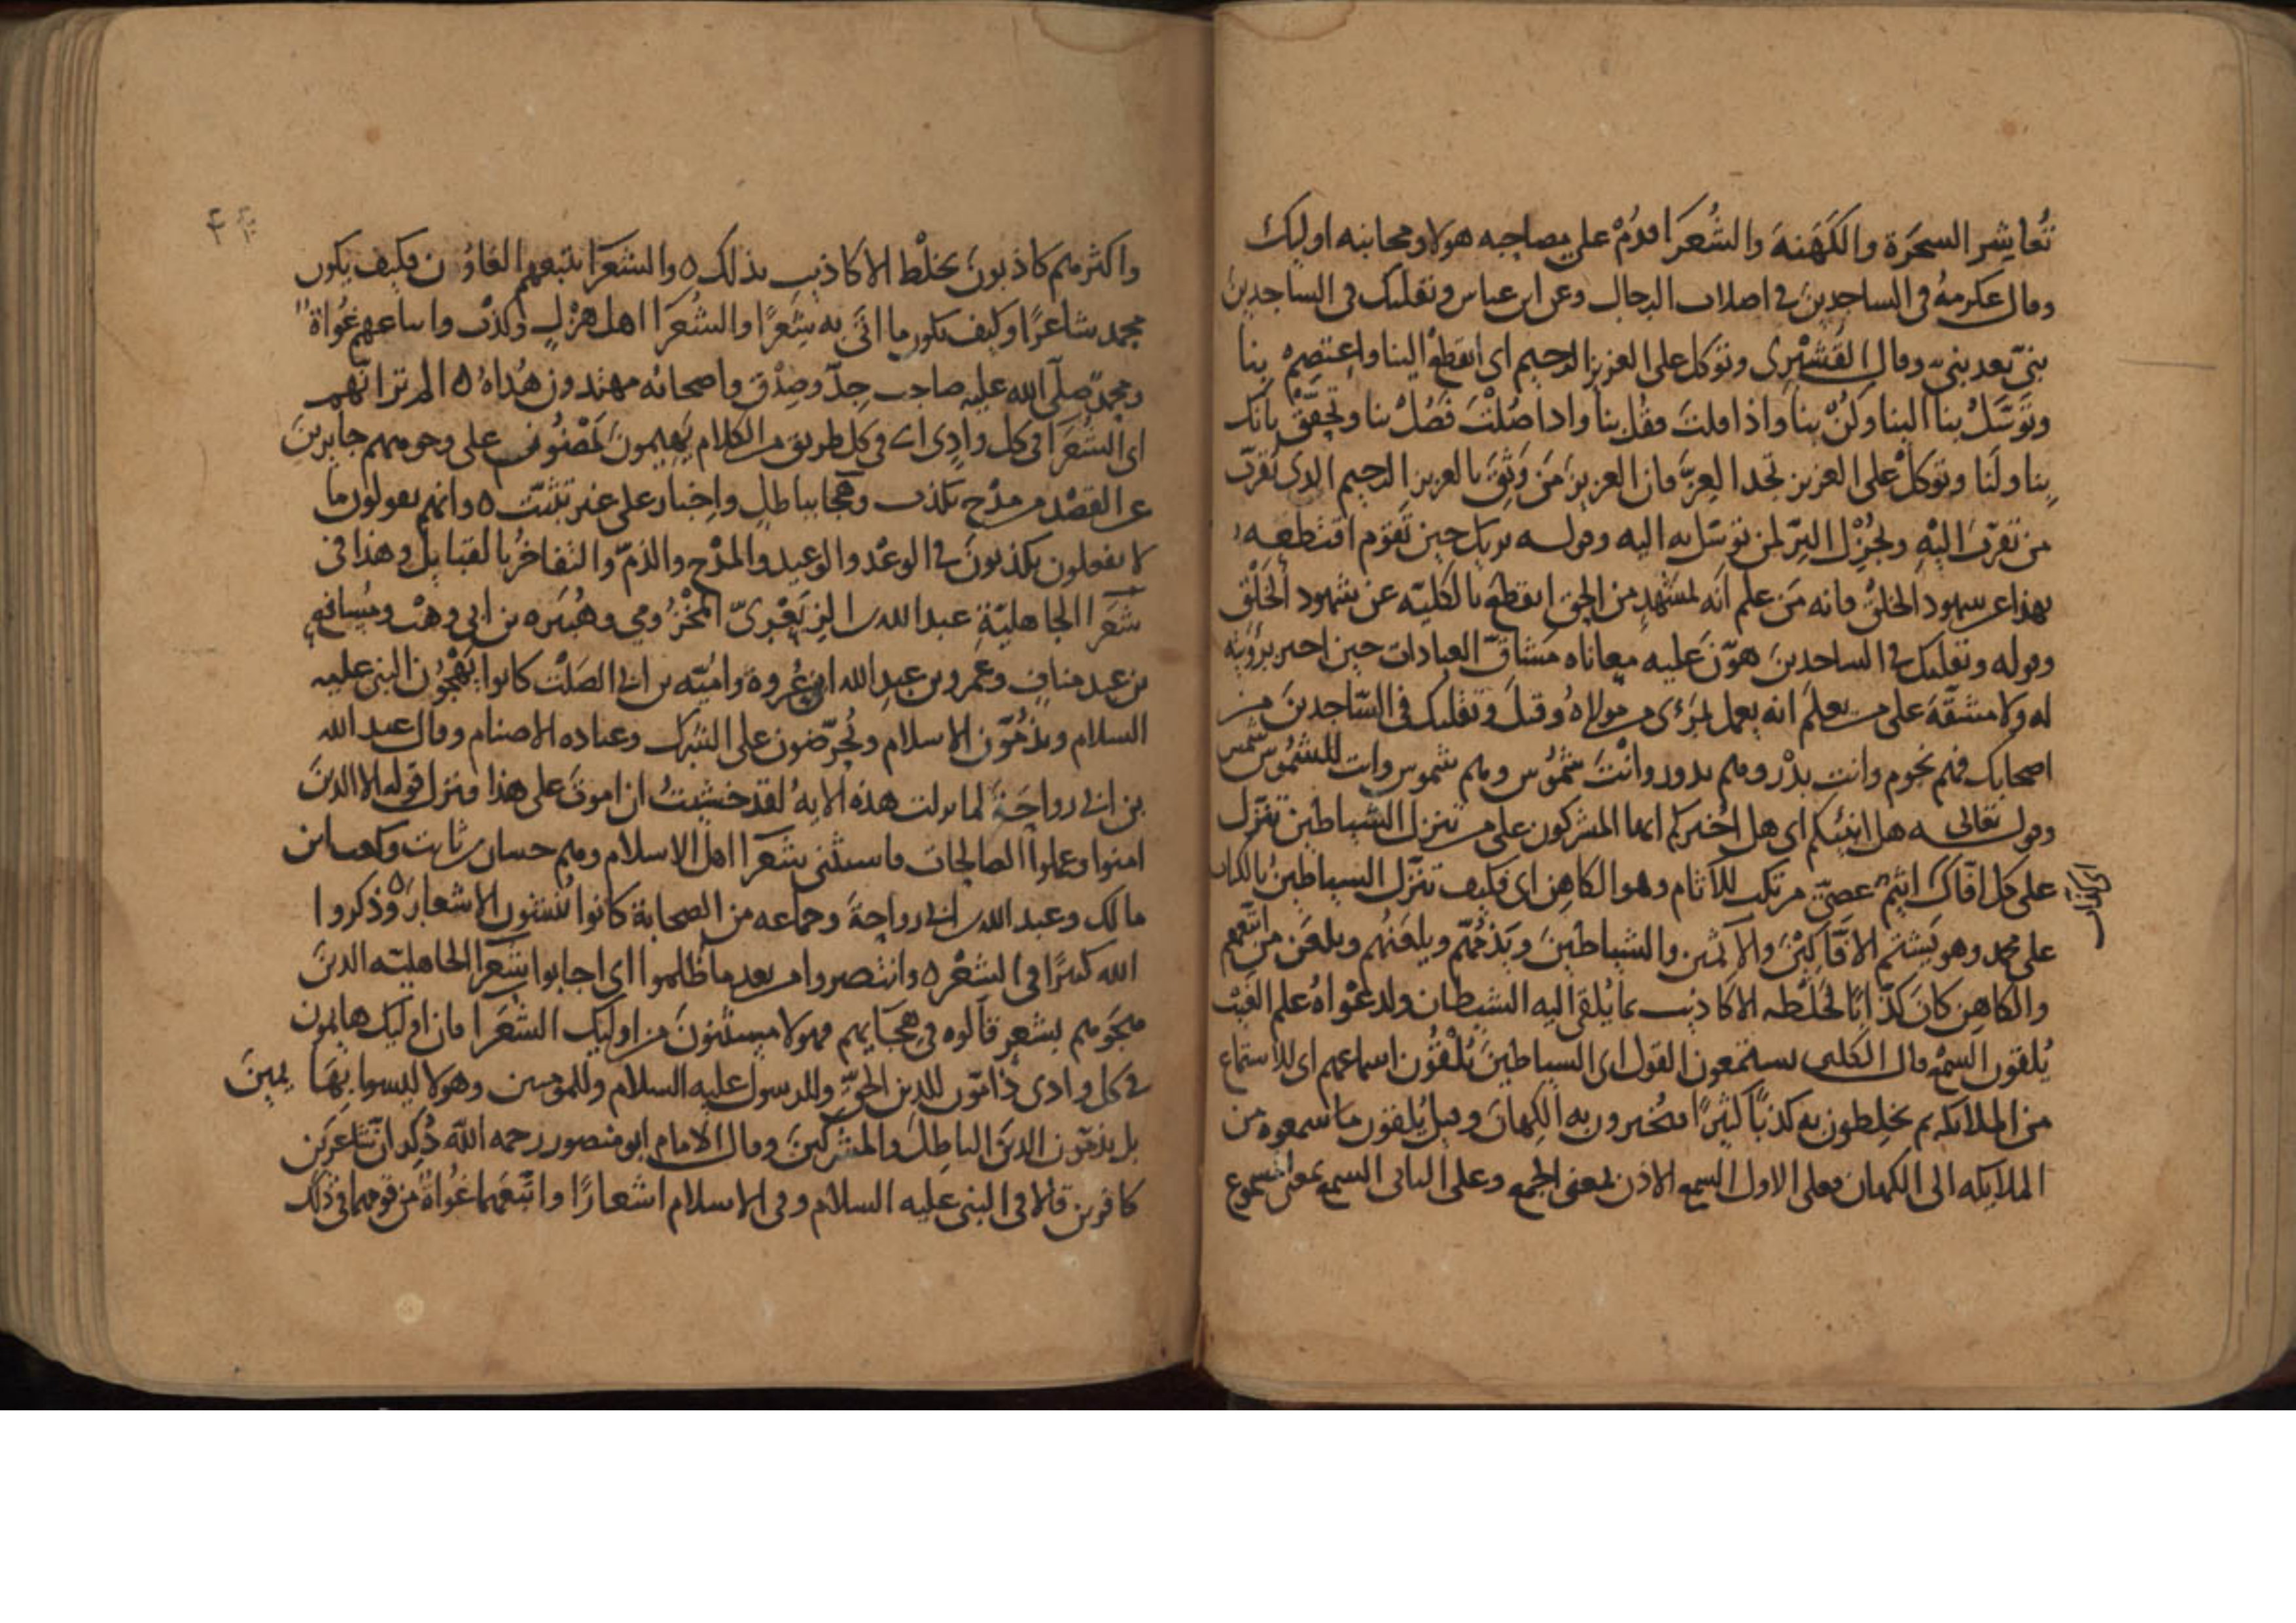 تُعاشِر السحَرَة والكَهَنةَ والشُعَرَا فدُمْ على مصاحبه هولا ومجانبه اوليك
وقال عكرمهُ في الساجدينَ في اصلاب الرجال وعن ابن عباس وتقلبك في الساجدينَ
بنيّ بعد بنيّ وقال القُشَيْري وتوكل على العزيز الرحيم اى انقطعْ الينا واعتصِمْ بنا
وتَوَسَّلْ بنا الينا وكُنْ بنا واذا قلتَ فقُل بنا واذا صُلْتَ فصُلْ بنا وتحقّقْ بانّك
بِنا ولَنا وتوكلْ على العزيز تجد العِزَّ فان العزيز مَن وَثِقَ بالعزيز الرحيم الذى يُقرّب
من تقرّبَ اليْهِ ويُجْزِل البِرّ لمن توسّل به اليه وقوله يريك حين تقوم اقتطعه
بهذا عن شهود الخلق فانه مَن علم انّه لمشهدٍ من الحق انقطع بالكليّه عن شهود الخَلْق
وقوله وتقلبك في الساجدين هوّن عليه معاناه مَشاقّ العبادات حين اخبر برؤيته
له ولا مشقّةَ على من يعلم انه يعمل بمرْءى من مولاهُ وقيلَ وتقلبك في السّاجدينَ من
اصحابك فهم نجوم وانت بدْر وهم بدور وانْتَ شمُوس وهم شموس وانت للشمُوس شمس
وقول تعالى ه هل انبئكم اى هل اُخبركم ايها المشركون على من تنزل الشياطين تنزّل
على كل افّاك اثيم عصيّ مرتكب للآثام وهو الكاهِن اى فكيف تنزّل الشياطينُ بالكتاب
على محمد وهو يَشتم الافّاكِينَ والآثمين والشياطينَ ويَذُمّهم ويلعَنُهم ويلعَن من اتبعهم
والكاهِن كانَ كذّابًا لخَلْطه الاكاذيب بما يُلقى اليه الشيطان ولدعْواهُ علم الغَيْب
يُلقون السمْع قال الكلبى يستمعون القول اى الشياطينَ يُلْقُون اسماعهم اى للاستماع
من الملايكه ثم يخلِطون به كذبًا كثيرًا فيُخبرون به الكِهانَ وقيل يُلقون ما سمعوه من
الملايكه الى الكهان فعلى الاول السمع الاذن بمعنى الجمع وعلى الثانى السمع بمعنى المسموع
واكثرهم كاذبونَ بخلْط الاكاذيبِ بذلك ه والشعَرَا يتبعهم الغاوُن فكيف يكون
محمد شاعرًا وكيف يكون ما اتَى به شِعْرًا والشُعَرَا اهل هزْلٍ وكذْب واتباعهم غُواة
ومحمدٌ صلّى الله عليه صاحب جِدّ وصِدْق واصحابه مهتدون هُداة ه الم تر انّهم
اى الشُعَرَا في كل وادٍى اى في كل طريق من الكلام يَهيمونَ يَمْضُونَ على وجوههم جايرينَ
عن القصْد من مدْح بكذب وهجا بباطل واِخبار على غير تثبّت ه وانهم يقولون ما
لا يفعلون يكذبونَ في الوعْد والوعيد والمدْح والذمّ والتفاخُر بالقبايل وهذا في
شعَرَا الجاهليّة عبد الله بن الزبَعْرىّ المخْزُومى وهُبَيره بن ابي وهْب ومُسافع
بن عبد منافٍ وعمرو بن عبد الله ابو عُروة وامُيّه بن ابي الصَلْت كانوا يَهْجُون النبى عليه
السلام ويذُمّون الاسلام ويُحرّضون على الشرك وعباده الاصنام وقال عبد الله
بن ابي رواحَةَ لما نزلت هذه الايهُ لقد خشيتُ ان اموتَ على هذا فنزل قوله الا الذينَ
امنوا وعملوا الصالحات فاستثنى شعَرَا اهل الاسلام وهم حسان بن ثابت وكعب ابن
مالك وعبد الله بن ابي رواحةَ وجماعه من الصحابة كانوا يُنشئون الاشعارَ ه وذكروا
الله كثيرًا في الشعْر ه وانتصروا من بعد ما ظُلموا اى اجابوا شعَرا الجاهليّه الذينَ
هجَوهم بشعرٍ قالوه في هِجَايهم فهولا مستثنَونَ من اوليك الشُعَرَا فان اوليك هايمون
في كل وادى ذامّون للدين الحقّ وللرسول عليه السلام وللمومنين وهولا ليسوا بِهَايمينَ
بل يذمّون الدينَ الباطِلَ والمشْركينَ وقال الامام ابو منصور رحمه الله ذُكِر ان شاعرَين
كافرين قالا في النبى عليه السلام وفى الاسلام اشعارًا واتّبَعَهما غُواةٌ من قومهما في ذلك